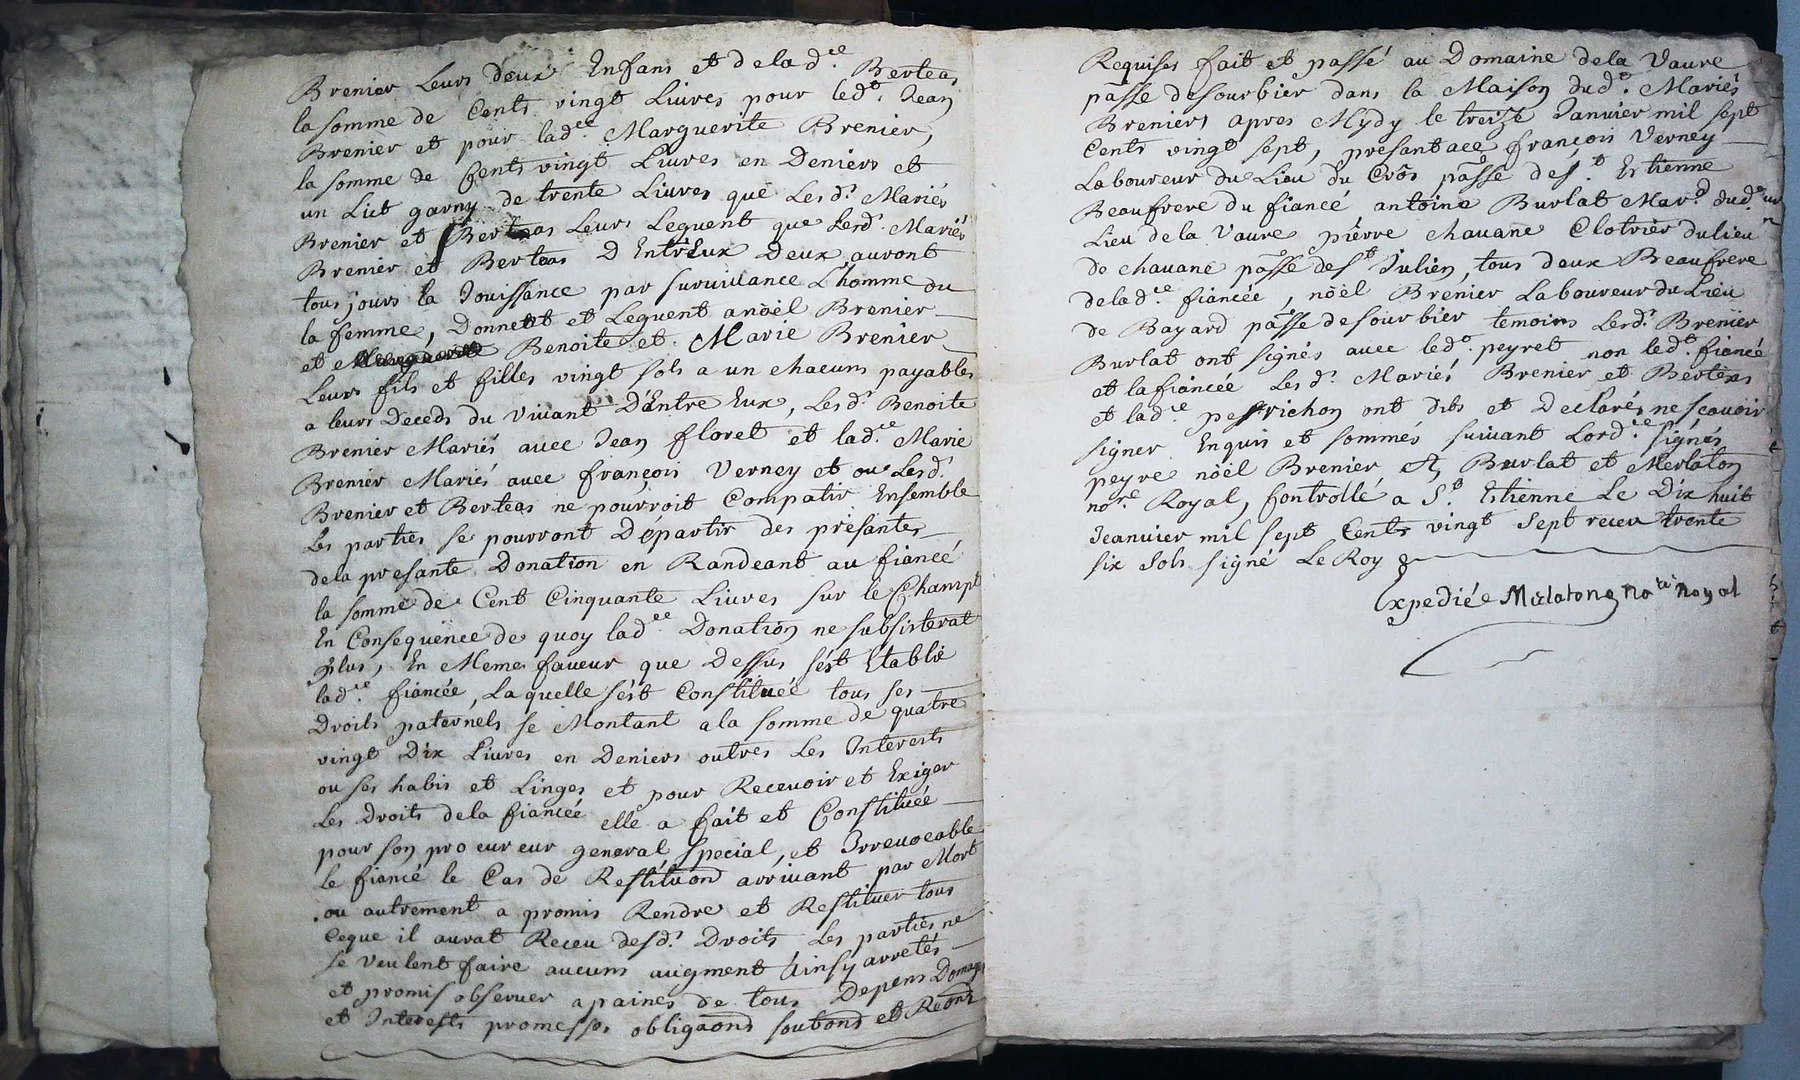 Brenier Leurs deux Enfans et de lad.ce Berteas
la somme de Cents vingt Livres pour led.t Jean
Brenier et pour lad.ce Marguerite Brenier,
la somme de Cents vingt Livres en Deniers et
un Lict garny de trente Livres que Lesd.s Mariés
Brenier et Berteas Leurs Leguent que Lesd.s Mariés
Brenier et Berteas D'Entr'Eux Deux auront
tous jours la Jouissance par survivance L'homme du
la femme, Donnett et Leguent a noèl Brenier
et Marguerite Benoite et Marie Brenier
Leurs fils et filles vingt sols a un chacuns payables
a leurs Deceds du vivant D'Entre Eux, Lesd.s Benoite
Brenier Mariés avec Jean floret et lad.ce Marie
Brenier Mariés avec françois Verney et ou Lesd.s
Brenier et Berteas ne pourroit Compatir Ensemble
Les parties se pourront Départir des présantes
de la presante Donation en Randeant au fiancé
la somme de Cent Cinquante Livres sur le Champt
En Consequence de quoy lad.ce Donation ne subsisterat
plus, En Meme faveur que Dessus s'est Etablie
lad.ce fiancée, Laquelle s'est Constituée tous ses
Droits paternels se Montant a la somme de quatre
vingt Dix Livres en Deniers outres Les Interests
ou ses habis et Linges et pour Recevoir et Exiger
Les Droits de la fiancée elle a fait et Constituée
pour son procureur general special, et Irrevocable
Le fiancé le Cas de Restituõn arrivant par Mort
ou autrement a promis Rendre et Restituer tous
Ceque il aurat Receu desd.s Droits Les parties ne
se veulent faire aucuns augment Ainsy arretés
et promis observer a paines de tous Depens Domages
et Interests promesses obligaõns soubons et Reõns
Requises fait et passé au Domaine de la Vaure
pãsse de sourbier dans la Maison dud.t Mariés
Breniers apres Mydy le treize Janvier mil sept
Cents vingt sept, présantace françois Verney
Laboureur du Lieu du Crôs pãsse de s.t Estienne
Beaufrere du fiancé antoine Burlat Mar.d dud.t
Lieu de la Vaure pièrre chauane Clotrier du lieu
de chauane pãsse de s.t Julien, tous deux Beaufrere
de lad.ce fiancée, nòèl Brenier Laboureur du Lieu
de Bayard pãsse de sourbier temoins Lesd.s Brenier
Burlat ont signés avec led.t peyret non led.t fiancé
et la fiancée Lesd.s Mariés Brenier et Berteas
et lad.ce perrichon ont dits et Declarés ne scavoir
signer Enquis et sommés suivant Lord.ce signés
peyre nòèl Brenier A, Burlat et Merlaton
no.re Royal, Controllé a S.t Estienne Le Dix huit
Jeanvier mil sept Cents vingt sept receu trente
six sols signé Le Roy
Expediée Merlaton no.re Royal